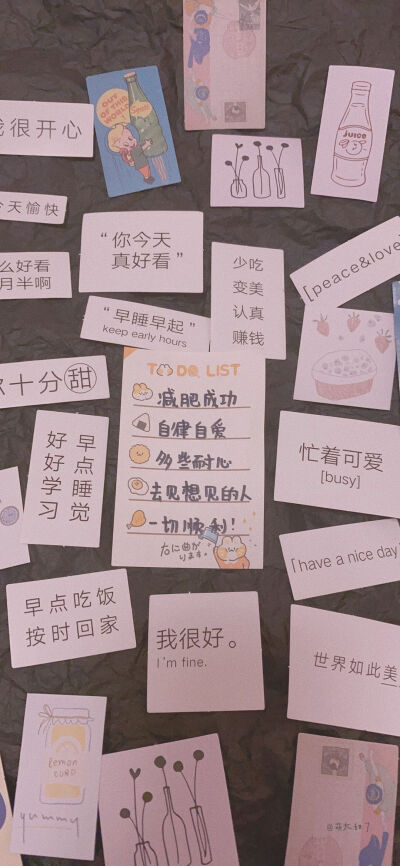 我很开心
OUT
OF THIS
WORLD
JUICE
今天愉快
“你今天
真好看”
少吃
变美
认真
赚钱
[peace&love]
么好看
月半啊
“早睡早起”
keep early hours
十分甜
TO DO LIST
减肥成功
自律自爱
多些耐心
去见想见的人
一切顺利!
右に曲が
ります。
早点睡觉
好好学习
忙着可爱
[busy]
「have a nice day
早点吃饭
按时回家
我很好。
I'm fine.
世界如此美
lemon
CURD
yummy